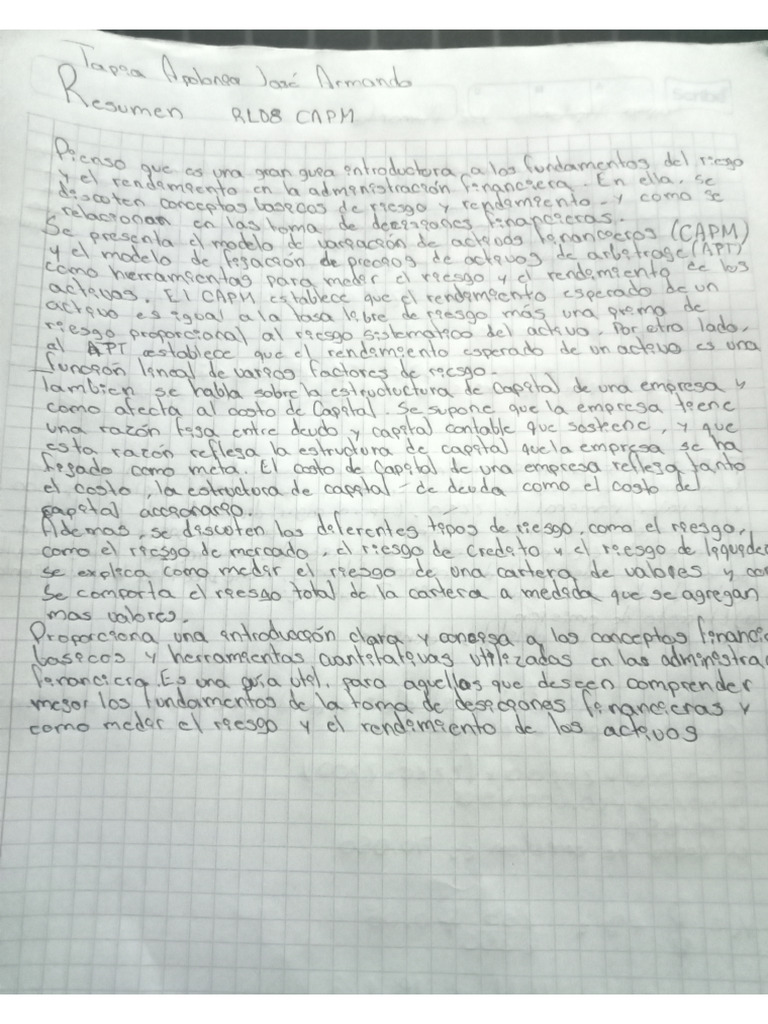 Tapia Apolonia José Armando
Resumen RL08 CAPM
Pienso que es una gran guia introductora, a los fundamentos del riesgo
y el rendimiento en la administración financiera. En ella, se
discuten conceptos basicos de riesgo y rendimiento y como se
relacionan en las toma de decisiones financieras.
Se presenta el modelo de variación de activos financieros (CAPM)
y el modelo de fijación de precios de activos de arbitrage (APT)
como herramientas para medir el riesgo y el rendimiento de los
activos. El CAPM establece que el rendimiento esperado de un
activo es igual a la tasa libre de riesgo más una prima de
riesgo proporcional al riesgo sistematico del activo. Por otro lado,
el APT establece que el rendimiento esperado de un activo es una
función lineal de varios factores de riesgo.
Tambien se habla sobre la estructuctura de Capital de una empresa y
como afecta al costo de Capital. Se supone que la empresa tiene
una razón fija entre deuda y capital contable que sostiene, y que
esta razón refleja la estructura de capital que la empresa se ha
fijado como meta. El costo de Capital de una empresa refleja tanto
el costo, la estructura de capital - de deuda como el costo del
capital accionario.
Ademas, se discuten los diferentes tipos de riesgo, como el riesgo,
como el riesgo de mercado, el riesgo de credito y el riesgo de liquidez
se explica como medir el riesgo de una cartera de valores y co
se comporta el riesgo total de la cartera a medida que se agregan
mas valores.
Proporciona una introducción clara y concisa a los conceptos financi
basicos y herramientas cuantitativas utilizadas en las administra
financiera. Es una guía util. para aquellas que deseen comprender
mejor los fundamentos de la toma de desiciones financieras y
como medir el riesgo y el rendimiento de los activos